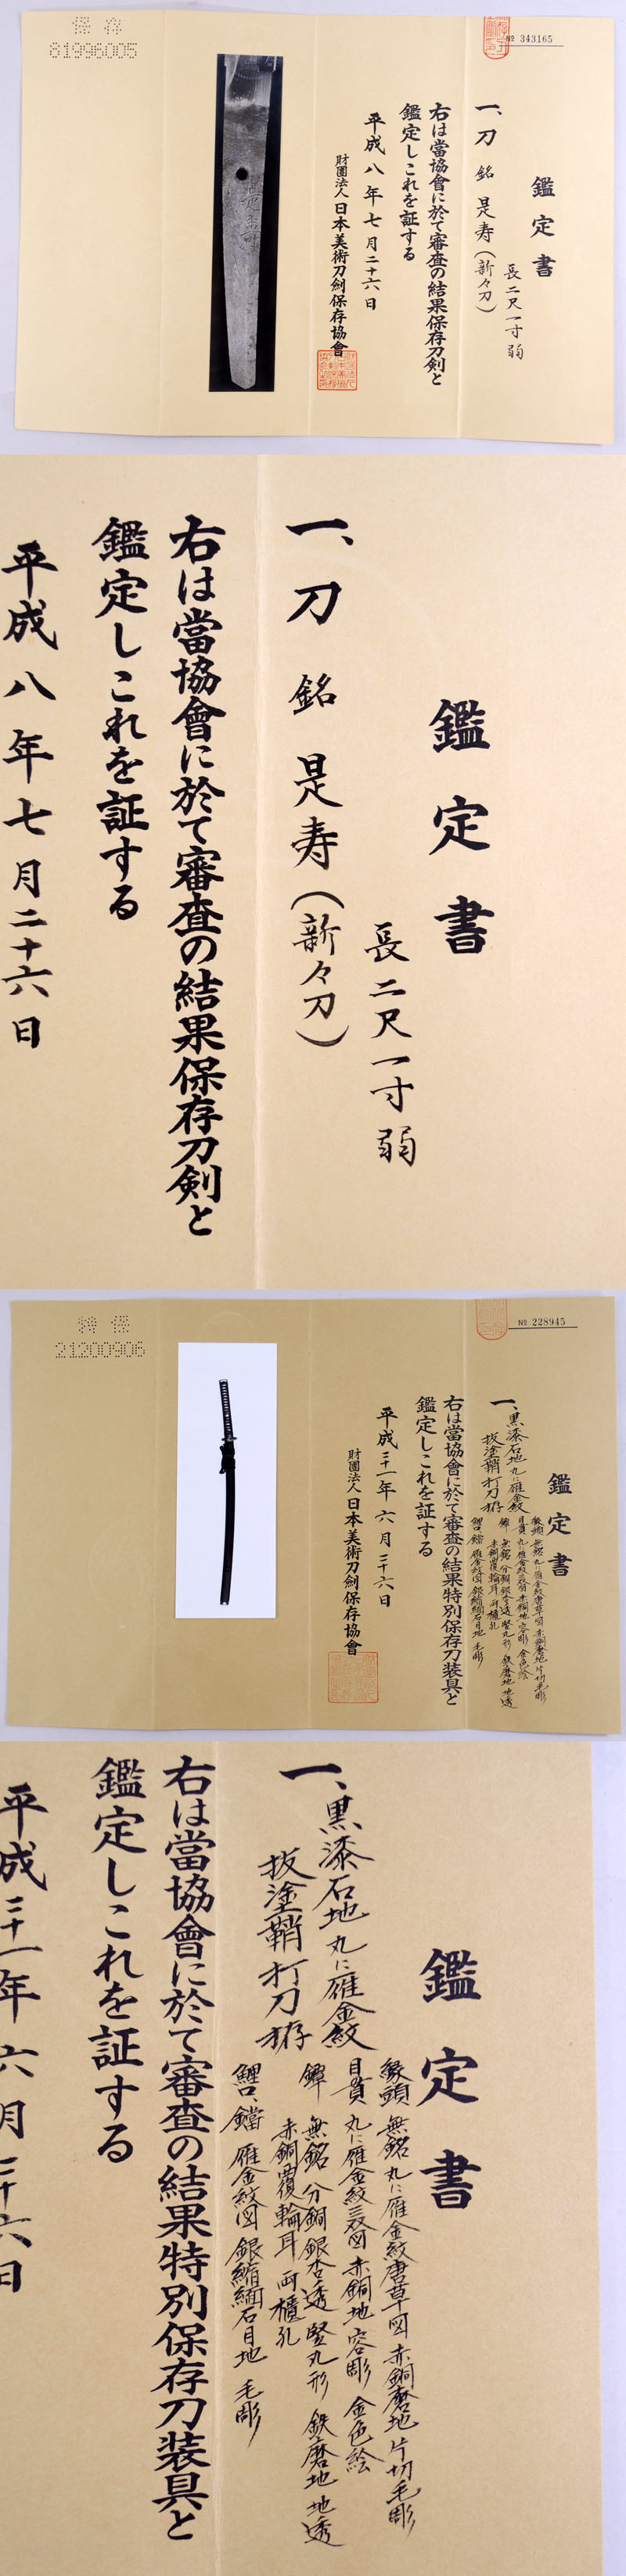 保存
81996005
№ 343165
鑑定書
一、刀 銘 是寿(新々刀)
長二尺一寸弱
右は當協會に於て審査の結果保存刀剣と
鑑定しこれを証する
平成八年七月二十六日
財團法人日本美術刀劍保存協會
鑑定書
長二尺一寸弱
一、刀 銘 是寿(新々刀)
右は當協會に於て審査の結果保存刀剣と
鑑定しこれを証する
平成八年七月二十六日
特保
21200906
№ 228945
鑑定書
一、黒漆石地丸に雁金紋
抜塗鞘打刀拵
縁頭 無銘 丸に雁金紋唐草図 赤銅磨地 片切毛彫
目貫 丸に雁金紋三双図 赤銅地 容彫 金色絵
鐔 無銘 分銅銀杏透 竪丸形 鉄磨地 地透
赤銅覆輪耳 両櫃孔
鯉口、鐺 雁金紋図 銀縮緬石目地 毛彫
右は當協會に於て審査の結果特別保存刀装具と
鑑定しこれを証する
平成二十一年六月二十六日
財團法人日本美術刀劍保存協會
鑑定書
一、黒漆石地丸に雁金紋
抜塗鞘打刀拵
縁頭 無銘 丸に雁金紋唐草図 赤銅磨地 片切毛彫
目貫 丸に雁金紋三双図 赤銅地 容彫 金色絵
鐔 無銘 分銅銀杏透 竪丸形 鉄磨地 地透
赤銅覆輪耳 両櫃孔
鯉口、鐺 雁金紋図 銀縮緬石目地 毛彫
右は當協會に於て審査の結果特別保存刀装具と
鑑定しこれを証する
平成二十一年六月二十六日